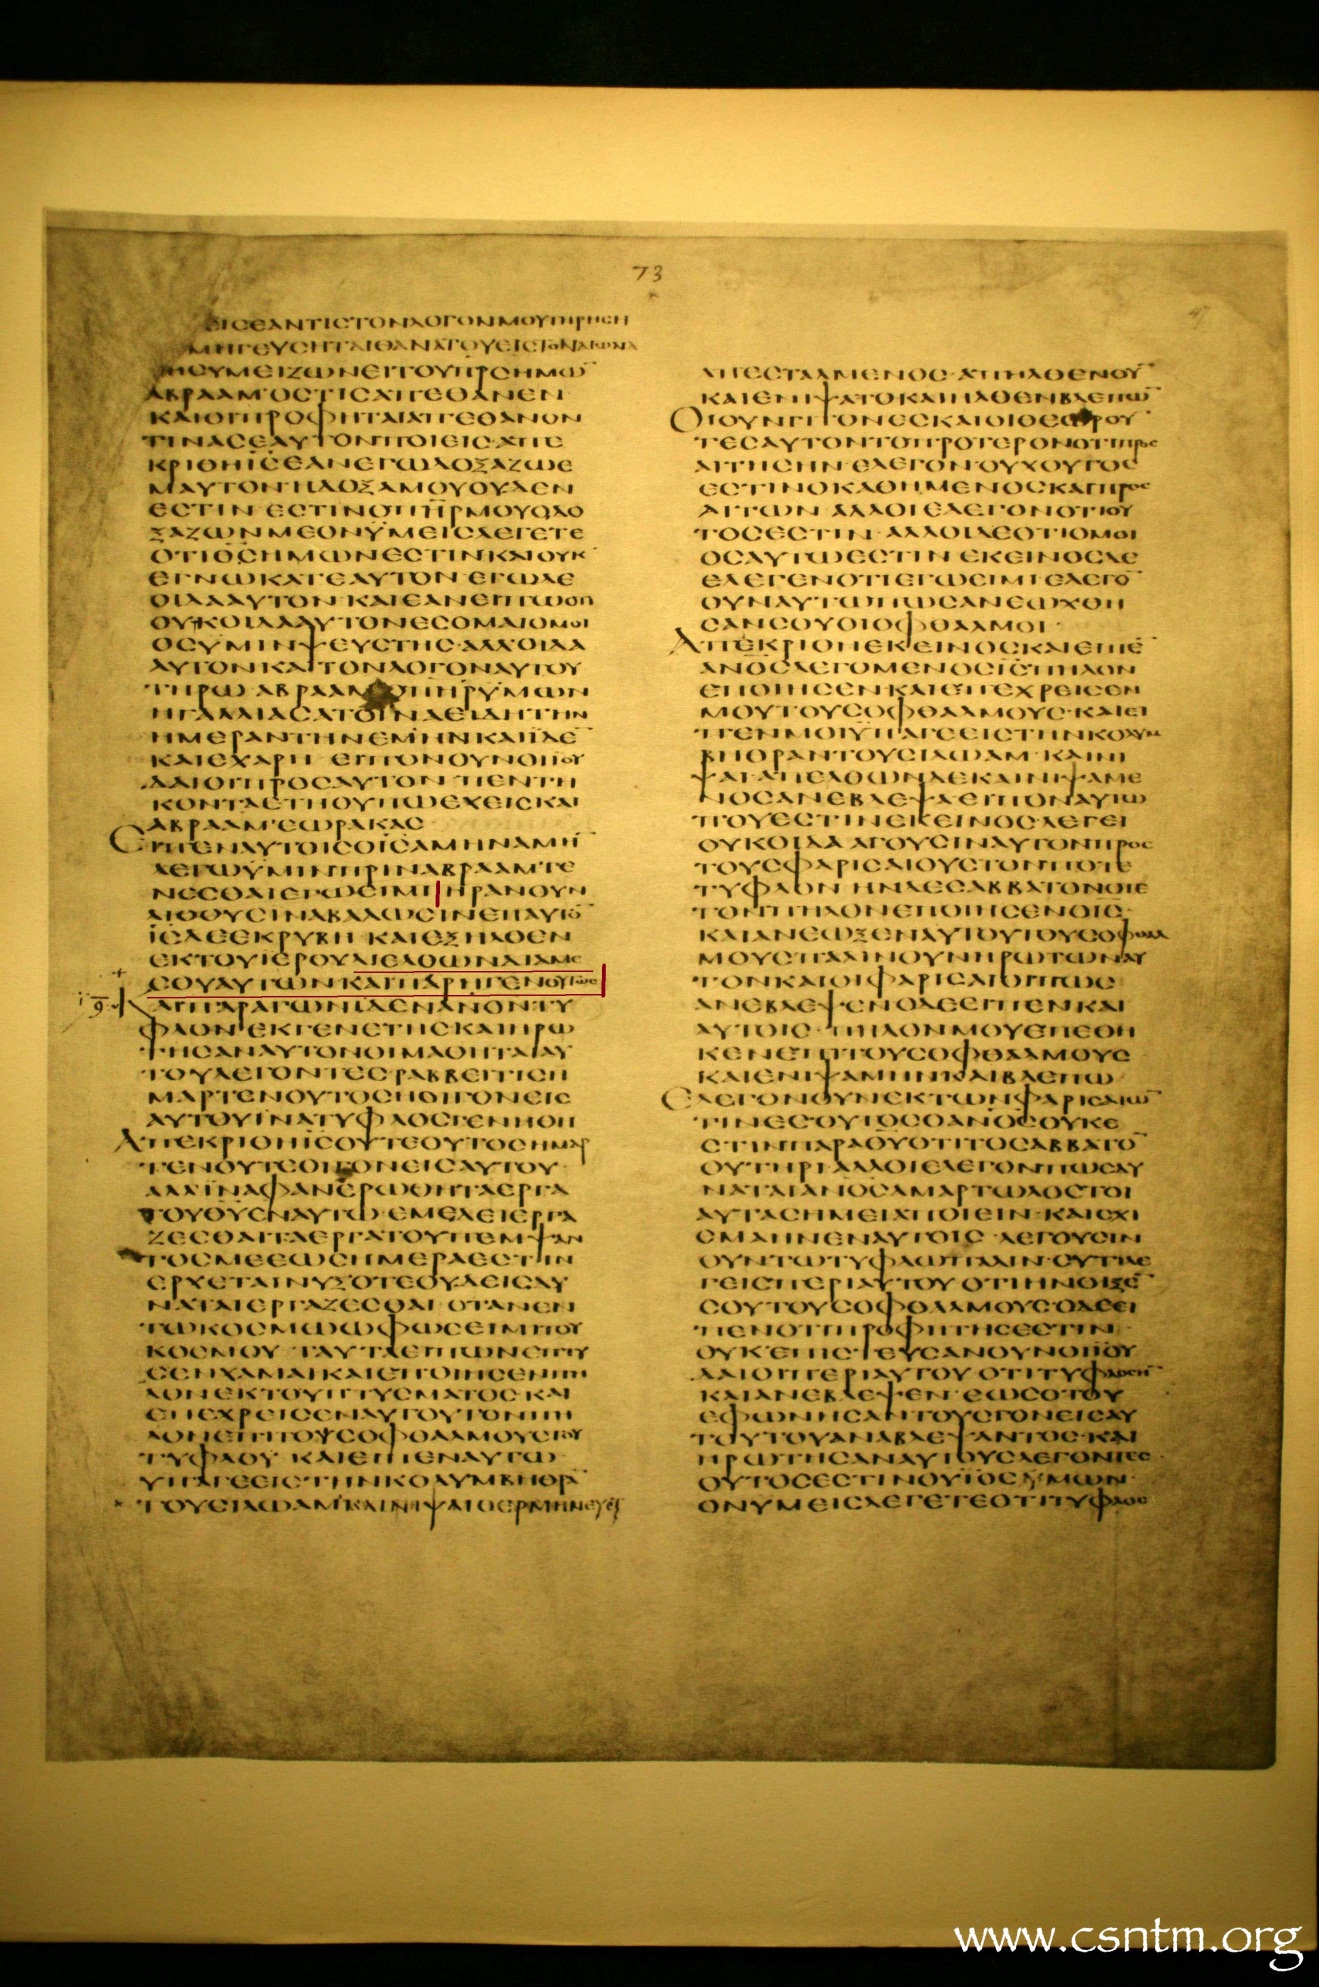 73
ΕΙϹΕΑΝΤΙϹΤΟΝΛΟΓΟΝΜΟΥΤΗΡΗϹΗ
ϹΥΜΕΙΖΩΝΕΙΤΟΥΠΡϹΗΜΩ̅
ΑΒΡΑΑΜ·ΟϹΤΙϹΑΠΕΘΑΝΕΝ
ΚΑΙΟΙΠΡΟΦΗΤΑΙΑΠΕΘΑΝΟΝ
ΤΙΝΑϹΕΑΥΤΟΝΠΟΙΕΙϹ·ΑΠΕ
ΚΡΙΘΗΙϹΕΑΝΕΓΩΔΟΞΑΖΩΕ
ΜΑΥΤΟΝΗΔΟΞΑΜΟΥΟΥΔΕΝ
ΕϹΤΙΝ ΕϹΤΙΝΟΠΗΡΜΟΥΟΔΟ
ΞΑΖΩΝΜΕΟΝΥΜΕΙϹΛΕΓΕΤΕ
ΟΤΙΘϹΗΜΩΝΕϹΤΙΝΚΑΙΟΥΚ
ΕΓΝΩΚΑΤΕΑΥΤΟΝ ΕΓΩΔΕ
ΟΙΔΑΑΥΤΟΝ ΚΑΙΕΑΝΕΙΠΩΟΤΙ
ΟΥΚΟΙΔΑΑΥΤΟΝΕϹΟΜΑΙΟΜΟΙ
ΟϹΥΜΙΝΨΕΥϹΤΗϹ·ΑΛΛΟΙΔΑ
ΑΥΤΟΝΚΑΙΤΟΝΛΟΓΟΝΑΥΤΟΥ
ΤΗΡΩ ΑΒΡΑΑΜΟΠΗΡΥΜΩΝ
ΗΓΑΛΛΙΑϹΑΤΟΙΝΑΕΙΔΗΤΗΝ
ΗΜΕΡΑΝΤΗΝΕΜΗΝΚΑΙΙΔΕ
ΚΑΙΕΧΑΡΗ ΕΙΠΟΝΟΥΝΟΙΙΟΥ
ΔΑΙΟΙΠΡΟϹΑΥΤΟΝ ΠΕΝΤΗ
ΚΟΝΤΑΕΤΗΟΥΠΩΕΧΕΙϹΚΑΙ
ΑΒΡΑΑΜ·ΕΩΡΑΚΑϹ
ΕΙΠΕΝΑΥΤΟΙϹΟΙϹΑΜΗΝΑΜΗ̅
ΛΕΓΩΥΜΙΝΠΡΙΝΑΒΡΑΑΜΓΕ
ΝΕϹΘΑΙΕΓΩΕΙΜΙΗΡΑΝΟΥΝ
ΛΙΘΟΥϹΙΝΑΒΑΛΩϹΙΝΕΠΑΥΤΟ̅
ΙϹΔΕΕΚΡΥΒΗ ΚΑΙΕΞΗΛΘΕΝ
ΕΚΤΟΥΙΕΡΟΥΔΙΕΛΘΩΝΔΙΑΜΕ
ϹΟΥΑΥΤΩΝΚΑΙΠΑΡΗΓΕΝΟΥΤΩϹ
ΚΑΙΠΑΡΑΓΩΝΙΔΕΝΑΝΟΝΤΥ
ΦΛΟΝ ΕΚΓΕΝΕΤΗϹΚΑΙΗΡΩ
ΤΗϹΑΝΑΥΤΟΝΟΙΜΑΘΗΤΑΙΑΥ
ΤΟΥΛΕΓΟΝΤΕϹ ΡΑΒΒΕΙΤΙϹΗ
ΜΑΡΤΕΝΟΥΤΟϹΗΟΙΓΟΝΕΙϹ
ΑΥΤΟΥΙΝΑΤΥΦΛΟϹΓΕΝΝΗΘΗ
ΑΠΕΚΡΙΘΗΙϹΟΥΤΕΟΥΤΟϹΗΜΑΡ
ΤΕΝΟΥΤΕΟΙΓΟΝΕΙϹΑΥΤΟΥ
ΑΛΛΙΝΑΦΑΝΕΡΩΘΗΤΑΕΡΓΑ
ΤΟΥΘΥΕΝΑΥΤΩ ΕΜΕΔΕΙΕΡΓΑ
ΖΕϹΘΑΙΤΑΕΡΓΑΤΟΥΠΕΜΨΑΝ
ΤΟϹΜΕΕΩϹΗΜΕΡΑΕϹΤΙΝ
ΕΡΧΕΤΑΙΝΥΞΟΤΕΟΥΔΕΙϹΔΥ
ΝΑΤΑΙΕΡΓΑΖΕϹΘΑΙ ΟΤΑΝΕΝ
ΤΩΚΟϹΜΩΩΦΩϹΕΙΜΙΤΟΥ
ΚΟϹΜΟΥ ΤΑΥΤΑΕΙΠΩΝΕΠΤΥ
ϹΕΝΧΑΜΑΙΚΑΙΕΠΟΙΗϹΕΝΠΗ
ΛΟΝΕΚΤΟΥΠΤΥϹΜΑΤΟϹ·ΚΑΙ
ΕΠΕΧΡΕΙϹΕΝΑΥΤΟΥΤΟΝΠΗ
ΛΟΝΕΠΙΤΟΥϹΟΦΘΑΛΜΟΥϹΤΟΥ
ΤΥΦΛΟΥ ΚΑΙΕΙΠΕΝΑΥΤΩ
ΥΠΑΓΕΕΙϹΤΗΝΚΟΛΥΜΒΗΘΡΑ̅
ΤΟΥϹΙΛΩΑΜ
ΑΠΕϹΤΑΛΜΕΝΟϹ·ΑΠΗΛΘΕΝΟΥ̅
ΚΑΙΕΝΙΨΑΤΟΚΑΙΗΛΘΕΝΒΛΕΠΩ̅
ΟΙΟΥΝΓΙΤΟΝΕϹΚΑΙΟΙΘΕΩΡΟΥ
ΤΕϹΑΥΤΟΝΤΟΠΡΟΤΕΡΟΝΟΤΙΠΡΟϹ
ΑΙΤΗϹΗΝ ΕΛΕΓΟΝ·ΟΥΧΟΥΤΟϹ
ΕϹΤΙΝΟΚΑΘΗΜΕΝΟϹΚΑΙΠΡΟϹ
ΑΙΤΩΝ ΑΛΛΟΙΕΛΕΓΟΝΟΤΙΟΥ
ΤΟϹΕϹΤΙΝ ΑΛΛΟΙΔΕΟΤΙΟΜΟΙ
ΟϹΑΥΤΩΕϹΤΙΝ ΕΚΕΙΝΟϹΔΕ
ΕΛΕΓΕΝΟΤΙΕΓΩΕΙΜΙ ΕΛΕΓΟ̅
ΟΥΝΑΥΤΩΠΩϹΑΝΕΩΧΘΗ
ϹΑΝϹΟΥΟΙΟΦΘΑΛΜΟΙ·
ΑΠΕΚΡΙΘΗΕΚΕΙΝΟϹΚΑΙΕΙΠΕ̅
ΑΝΟϹΛΕΓΟΜΕΝΟϹΙϹΠΗΛΟΝ
ΕΠΟΙΗϹΕΝ·ΚΑΙΕΠΕΧΡΕΙϹΕΝ
ΜΟΥΤΟΥϹΟΦΘΑΛΜΟΥϹ·ΚΑΙΕΙ
ΠΕΝΜΟΙΥΠΑΓΕΕΙϹΤΗΝΚΟΛΥΜ
ΒΗΘΡΑΝΤΟΥϹΙΛΩΑΜ·ΚΑΙΝΙ
ΨΑΙΑΠΕΛΘΩΝΔΕΚΑΙΝΙΨΑΜΕ
ΝΟϹΑΝΕΒΛΕΨΑΕΙΠΟΝΑΥΤΩ
ΠΟΥΕϹΤΙΝΕΚΕΙΝΟϹΛΕΓΕΙ
ΟΥΚΟΙΔΑ ΑΓΟΥϹΙΝΑΥΤΟΝΠΡΟϹ
ΤΟΥϹΦΑΡΙϹΑΙΟΥϹΤΟΝΠΟΤΕ
ΤΥΦΛΟΝ ΗΝΔΕϹΑΒΒΑΤΟΝΟΤΕ
ΤΟΝΠΗΛΟΝΕΠΟΙΗϹΕΝΟΙϹ
ΚΑΙΑΝΕΩΞΕΝΑΥΤΟΥΤΟΥϹΟΦΘΑΛ
ΜΟΥϹΠΑΛΙΝΟΥΝΗΡΩΤΩΝΑΥ
ΤΟΝΚΑΙΟΙΦΑΡΙϹΑΙΟΙΠΩϹ
ΑΝΕΒΛΕΨΕΝΟΔΕΕΙΠΕΝΚΑΙ
ΑΥΤΟΙϹ·ΠΗΛΟΝΜΟΥΕΠΕΘΗ
ΚΕΝΕΠΙΤΟΥϹΟΦΘΑΛΜΟΥϹ
ΚΑΙΕΝΙΨΑΜΗΝΚΑΙΒΛΕΠΩ
ΕΛΕΓΟΝΟΥΝΕΚΤΩΝΦΑΡΙϹΑΙΩ̅
ΤΙΝΕϹΟΥΤΟϹΟΑΝΟϹΟΥΚΕ
ϹΤΙΝΠΑΡΑΘΥΟΤΙΤΟϹΑΒΒΑΤΟ̅
ΟΥΤΗΡΙ ΑΛΛΟΙΕΛΕΓΟΝΠΩϹΔΥ
ΝΑΤΑΙΑΝΟϹΑΜΑΡΤΩΛΟϹΤΟΙ
ΑΥΤΑϹΗΜΕΙΑΠΟΙΕΙΝ·ΚΑΙϹΧΙ
ϹΜΑΗΝΕΝΑΥΤΟΙϹ ΛΕΓΟΥϹΙΝ
ΟΥΝΤΩΤΥΦΛΩΠΑΛΙΝ·ϹΥΤΙΛΕ
ΓΕΙϹΠΕΡΙΑΥΤΟΥ ΟΤΙΗΝΟΙΞΕ̅
ϹΟΥΤΟΥϹΟΦΘΑΛΜΟΥϹΟΔΕΕΙ
ΠΕΝΟΤΙΠΡΟΦΗΤΗϹΕϹΤΙΝ
ΟΥΚΕΠΙϹΤΕΥϹΑΝΟΥΝΟΙΙΟΥ
ΔΑΙΟΙΠΕΡΙΑΥΤΟΥ ΟΤΙΤΥΦΛΟϹΗ̅
ΚΑΙΑΝΕΒΛΕΨΕΝ·ΕΩϹΟΤΟΥ
ΕΦΩΝΗϹΑΝΤΟΥϹΓΟΝΕΙϹΑΥ
ΤΟΥΤΟΥΑΝΑΒΛΕΨΑΝΤΟϹ·ΚΑΙ
ΗΡΩΤΗϹΑΝΑΥΤΟΥϹΛΕΓΟΝΤΕϹ
ΟΥΤΟϹΕϹΤΙΝΟΥΙΟϹΥΜΩΝ
ΟΝΥΜΕΙϹΛΕΓΕΤΕΟΤΙΤΥΦΛΟϹ
www.csntm.org